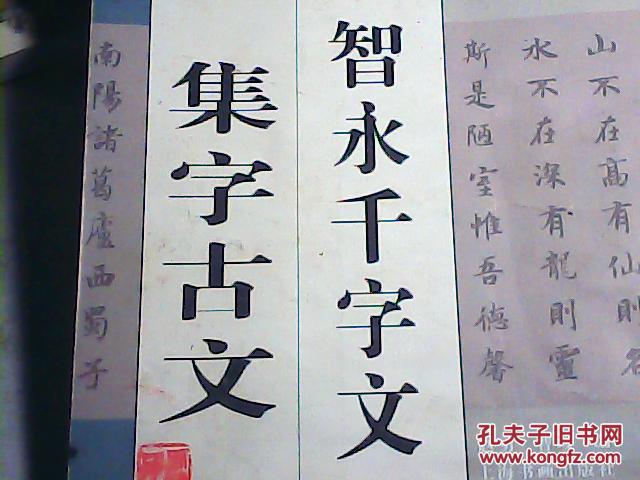 智永千字文
集字古文
山不在高有仙則名
水不在深有龍則靈
斯是陋室惟吾德馨
南陽諸葛廬西蜀子
上海书画出版社
孔夫子旧书网
KONGFZ.COM